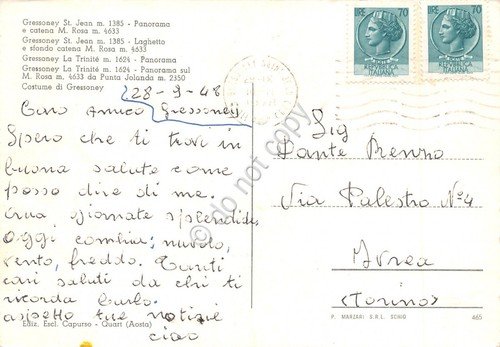 Gressoney St. Jean m. 1385 - Panorama
e catena M. Rosa m. 4633
Gressoney St. Jean m. 1385 - Laghetto
e sfondo catena M. Rosa m. 4633
Gressoney La Trinité m. 1624 - Panorama
Gressoney La Trinité m. 1624 - Panorama sul
M. Rosa m. 4633 da Punta Jolanda m. 2350
Costume di Gressoney
28-9-48
Caro Amico Gressoney
Spero che ti trovi in
buona salute come
posso dire di me.
giornate splendide,
oggi combina; nuvolo,
vento, freddo. Tanti
cari saluti da chi ti
ricorda Carlo.
aspetto tue notizie
ciao
Ediz. Escl. Capurso - Quart (Aosta)
70
70
ITALIANA
ITALIANA
Sig
Dante
Via Palestro N°4
(Torino)
P. MARZARI S.R.L. SCHIO
465
do not copy